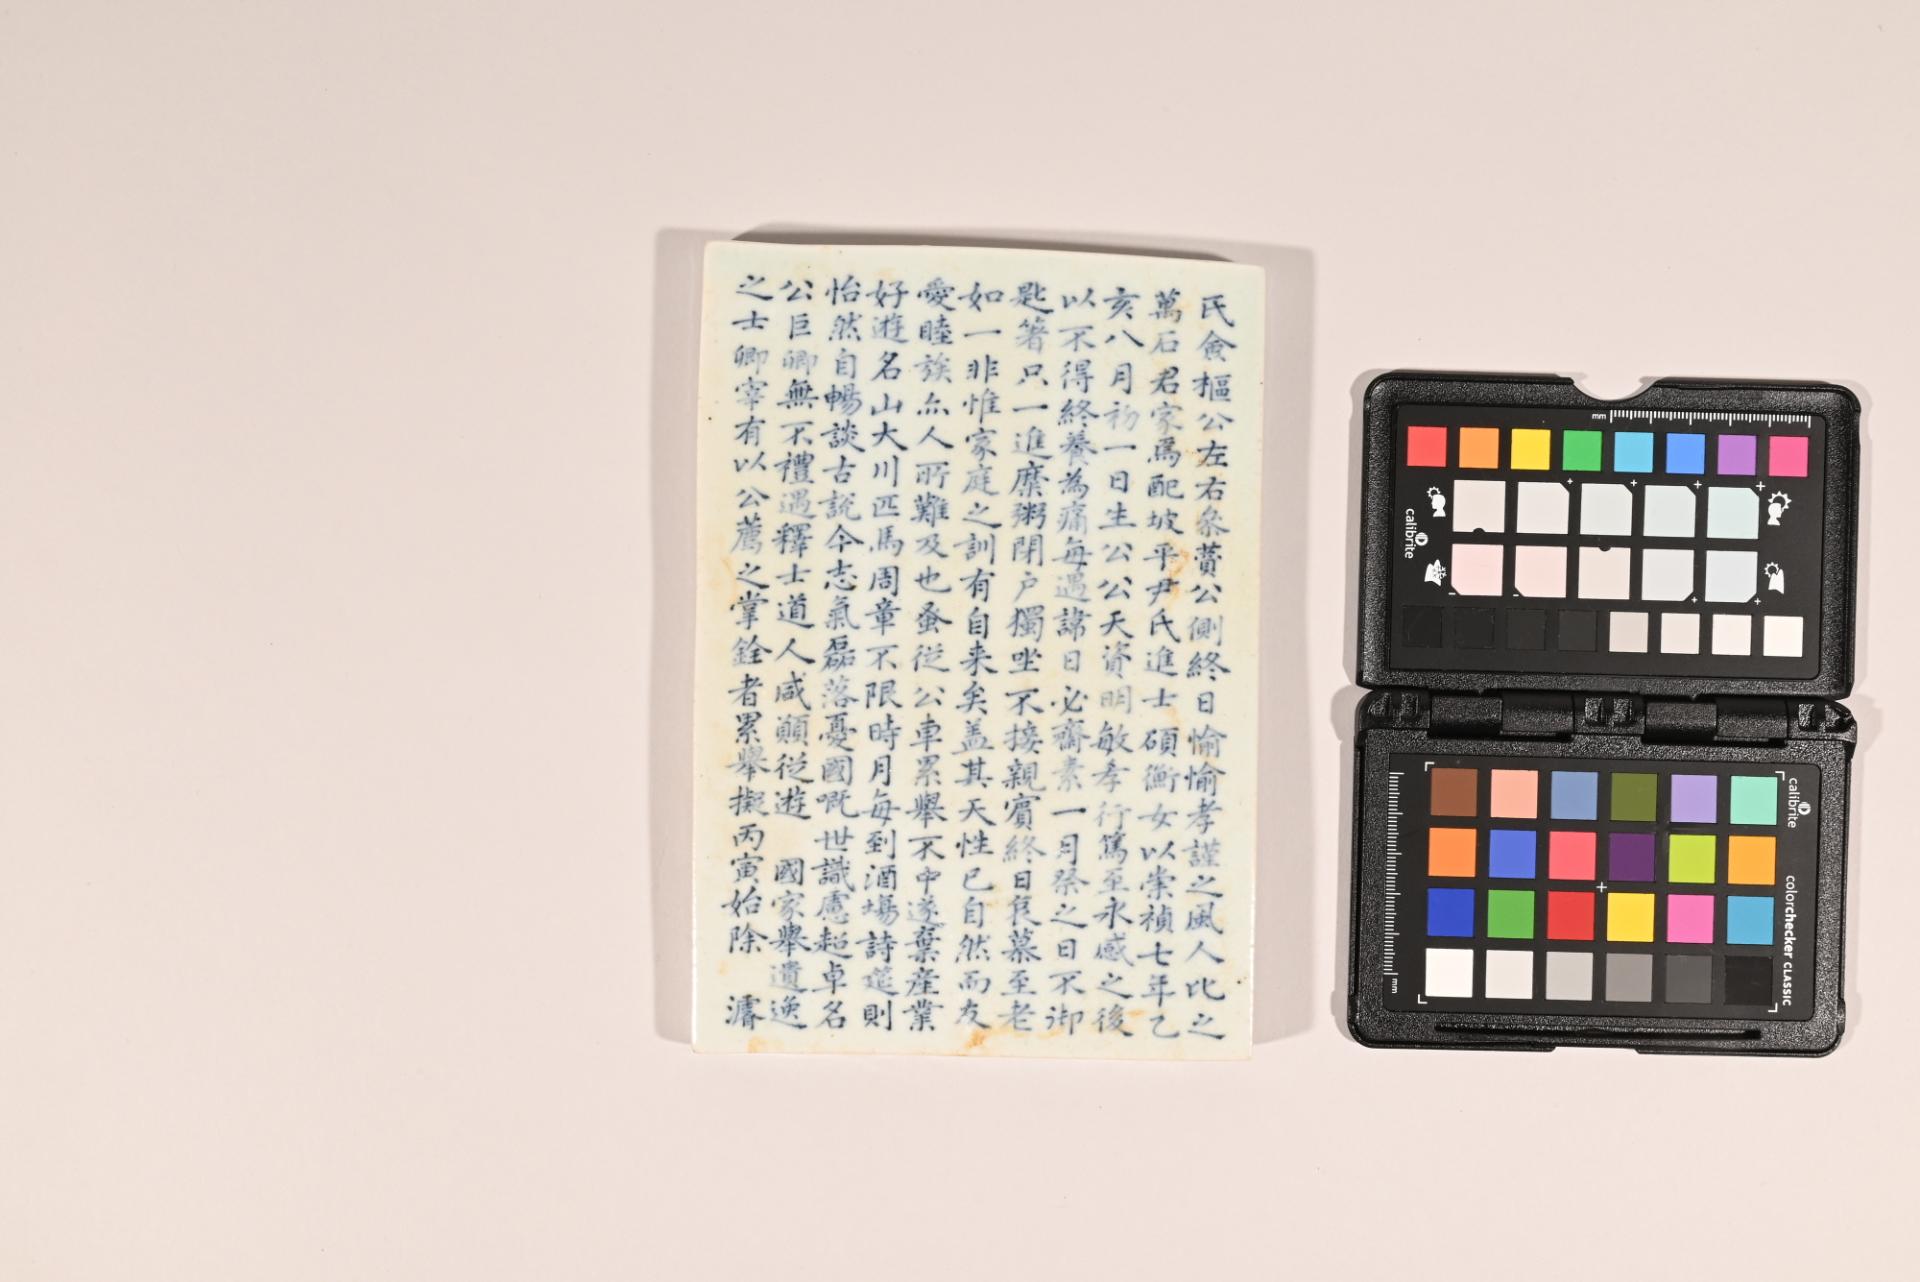 氏僉樞公左右叅贊公側終日愉愉孝謹之風人比之
萬石君家焉配坡平尹氏進士碩衡女以崇禎七年乙
亥八月初一日生公公天資明敏孝行篤至永感之後
以不得終養為痛每遇諱日必齋素一月祭之日不御
匙箸只一進糜粥閉户獨坐不接親賓終日哀慕至老
如一非惟家庭之訓有自来矣盖其天性已自然而友
愛睦族亦人所難及也蚤從公車累舉不中遂棄産業
好遊名山大川匹馬周章不限時月每到酒塲詩莚則
怡然自暢談古説今志氣磊落憂國嘅世識慮超卓名
公巨卿無不禮遇釋士道人咸願從遊 國家舉遺逸
之士卿宰有以公薦之掌銓者累舉擬丙寅始除 濬
mm
calibrite
calibrite
colorchecker CLASSIC
mm